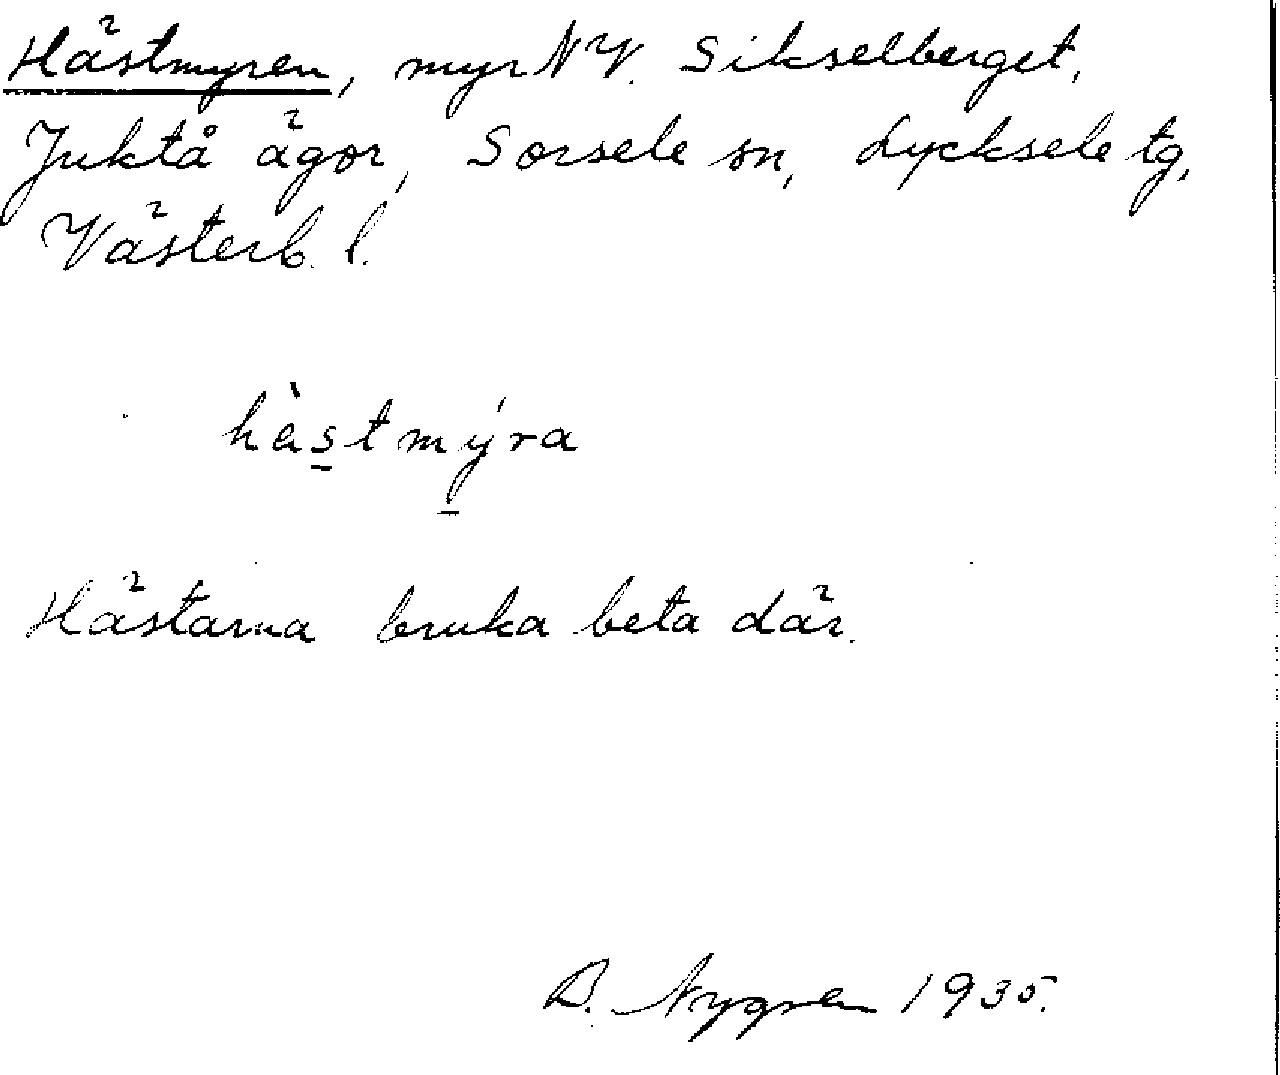 Hästmyren, myr NV. Sikselberget,
Juktå ägor, Sorsele sn, Lycksele tg,
Västerb. l.
hàs̲tmý̲ra
Hästarna bruka beta där.
B. Nygren 1935.